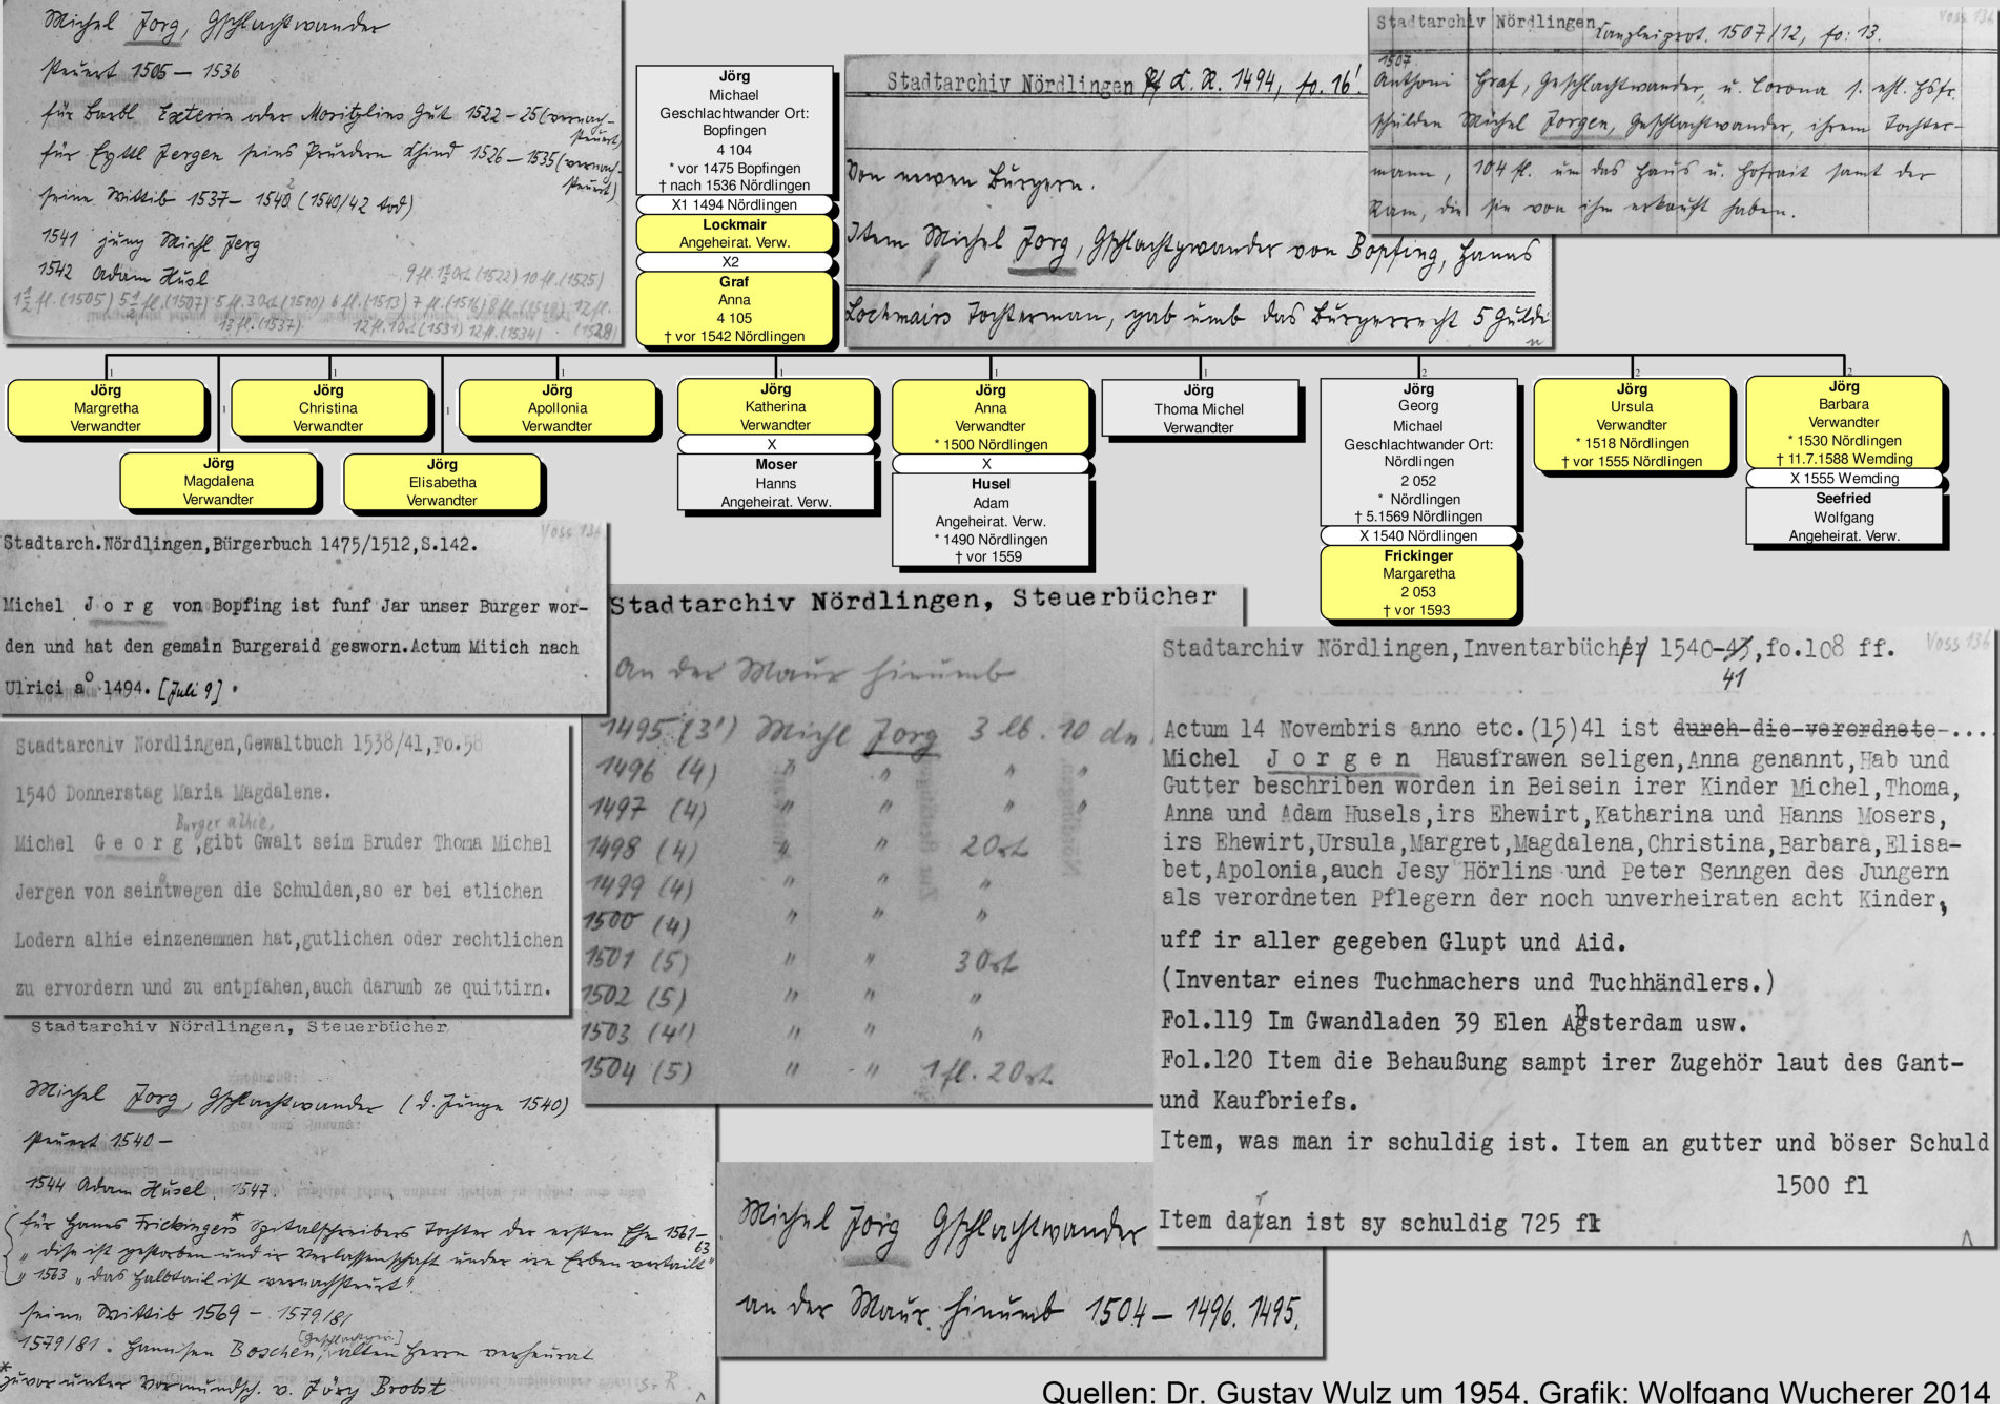 Michel Jorg, Gschlachtwander
steuert 1505 – 1536
für Barbl Exterin oder Moritzlins Gut 1522 – 25 (vernach-
steuert)
für Eyttl Jergen seins Pruedern Khind 1526 – 1535 (vernach-
steuert)
seine Wittib 1537 – 1540 (1540/42 tod)
1541 jung Michl Jerg
1542 Adam Husl
9 fl. 1½ Ort (1522) 10 fl. (1525)
1½ fl. (1505) 5½ fl. (1507) 5 fl. 3 Ort (1510) 6 fl. (1513) 7 fl. (1516) 8 fl. (1519) 12 fl.
13 fl. (1537) 12 fl. 1 Ort (1531) 12 fl. (1534) (1528)
Jörg
Michael
Geschlachtwander Ort:
Bopfingen
4 104
* vor 1475 Bopfingen
† nach 1536 Nördlingen
X1 1494 Nördlingen
Lockmair
Angeheirat. Verw.
X2
Graf
Anna
4 105
† vor 1542 Nördlingen
Stadtarchiv Nördlingen K. R. 1494, fo. 16'.
Von newen Burgern.
Item Michel Jorg, Gschlachtgwander von Bopfing, Hanns
Lochmairs Tochterman, gab umb das Burgerrecht 5 Guldi
n
Voss 136
Stadtarchiv Nördlingen Kanzleiprot. 1507/12, fo: 13.
1507
Anthoni Graf, Geschlachtwander, u. Corona s. ehl. Hsfr.
schulden Michel Jorgen, Geschlachtwander, ihrem Tochter-
mann, 104 fl. um das Haus u. Hofrait samt der
Ram, die sie von ihm erkauft haben.
1
Jörg
Margretha
Verwandter
1
Jörg
Magdalena
Verwandter
1
Jörg
Christina
Verwandter
1
Jörg
Elisabetha
Verwandter
1
Jörg
Apollonia
Verwandter
1
Jörg
Katherina
Verwandter
X
Moser
Hanns
Angeheirat. Verw.
1
Jörg
Anna
Verwandter
* 1500 Nördlingen
X
Husel
Adam
Angeheirat. Verw.
* 1490 Nördlingen
† vor 1559
1
Jörg
Thoma Michel
Verwandter
2
Jörg
Georg
Michael
Geschlachtwander Ort:
Nördlingen
2 052
* Nördlingen
† 5.1569 Nördlingen
X 1540 Nördlingen
Frickinger
Margaretha
2 053
† vor 1593
2
Jörg
Ursula
Verwandter
* 1518 Nördlingen
† vor 1555 Nördlingen
2
Jörg
Barbara
Verwandter
* 1530 Nördlingen
† 11.7.1588 Wemding
X 1555 Wemding
Seefried
Wolfgang
Angeheirat. Verw.
Voss 136
Stadtarch.Nördlingen,Bürgerbuch 1475/1512,S.142.
Michel J o r g von Bopfing ist funf Jar unser Burger wor-
den und hat den gemain Burgeraid gesworn.Actum Mitich nach
Ulrici a° 1494. [Juli 9].
Stadtarchiv Nordlingen,Gewaltbuch 1538/41,Fo.58
1540 Donnerstag Maria Magdalene.
Burger alhie,
Michel G e o r g ,gibt Gwalt seim Bruder Thoma Michel
Jergen von seintwegen die Schulden,so er bei etlichen
Lodern alhie einzenemmen hat,gutlichen oder rechtlichen
zu ervordern und zu entpfahen,auch darumb ze quittirn.
Stadtarchiv Nördlingen, Steuerbücher
Michel Jorg, Gschlachtwander (d. Junge 1540)
steuert 1540 –
1544 Adam Husel. 1547.
für Hanns Frickingers* Spitalschreibers Tochter der ersten Ehe 1561–
63
" dise ist gestorben und ir Verlassenschaft under ire Erben vertailt"
" 1563 " das Halbtail ist vernachsteurt".
seine Wittib 1569 – 1579/81
1579/81. Hannsen Boschen, [Geschlachtw.] alten Herrn verheurat
* zuvor unter Vormundsch. v. Jörg Brobst
S. R.
Stadtarchiv Nördlingen, Steuerbücher
An der Maur hinumb
1495 (3') Michl Jorg 3 lb. 10 dn.
1496 (4) " " " "
1497 (4) " " " "
1498 (4) " " 2 Ort
1499 (4) " " "
1500 (4) " " "
1501 (5) " " 3 Ort
1502 (5) " " "
1503 (4') " " "
1504 (5) " " 1 fl. 2 Ort
Michel Jorg Gschlachtwander
an der Maur hinumb 1504 – 1496. 1495.
Voss 136
Stadtarchiv Nördlingen,Inventarbücher 1540-43,fo.108 ff.
41
Actum 14 Novembris anno etc.(15)41 ist durch die verordnete-...
Michel J o r g e n Hausfrawen seligen,Anna genannt,Hab und
Gutter beschriben worden in Beisein irer Kinder Michel,Thoma,
Anna und Adam Husels,irs Ehewirt,Katharina und Hanns Mosers,
irs Ehewirt,Ursula,Margret,Magdalena,Christina,Barbara,Elisa-
bet,Apolonia,auch Jesy Hörlins und Peter Senngen des Jungern
als verordneten Pflegern der noch unverheiraten acht Kinder,
uff ir aller gegeben Glupt und Aid.
(Inventar eines Tuchmachers und Tuchhändlers.)
Fol.119 Im Gwandladen 39 Elen Angsterdam usw.
Fol.120 Item die Behaußung sampt irer Zugehör laut des Gant-
und Kaufbriefs.
Item, was man ir schuldig ist. Item an gutter und böser Schuld
1500 fl
Item daran ist sy schuldig 725 fl
Quellen: Dr. Gustav Wulz um 1954, Grafik: Wolfgang Wucherer 2014